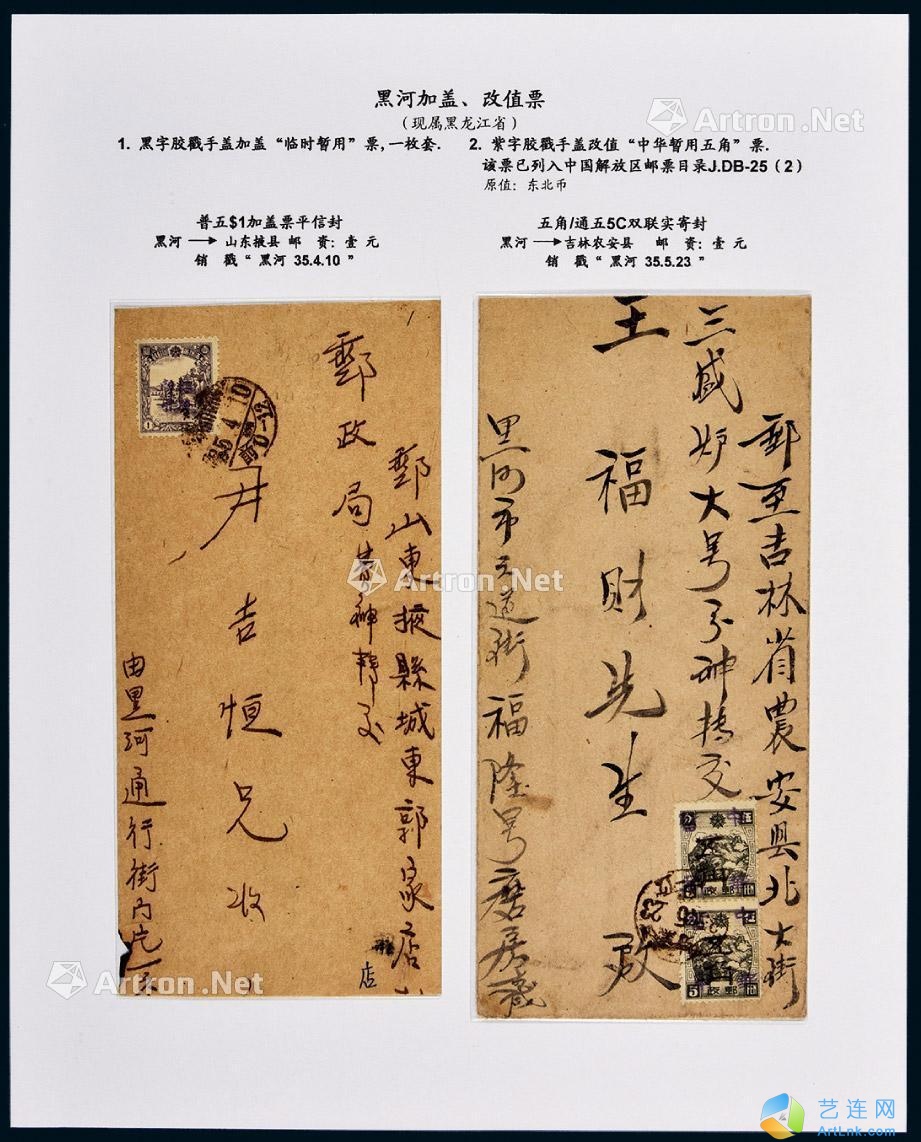 黑河加盖、改值票
(现属黑龙江省)
1. 黑字胶戳手盖加盖“临时暂用”票,一枚套.
2. 紫字胶戳手盖改值“中华暂用五角”票.
该票已列入中国解放区邮票目录J.DB-25(2)
原值: 东北币
普五$1加盖票平信封
黑河 → 山东掖县 邮 资: 壹 元
销 戳“ 黑河 35.4.10 ”
五角/通五5C双联实寄封
黑河 → 吉林农安县 邮 资: 壹 元
销 戳“ 黑河 35.5.23 ”
郵山東掖縣城東郭家店
店
郵政局
转交
井吉恒兄收
由黑河通行街内
35.4.10
郵至吉林省農安县北大街
三盛炉大号
转交
王福财先生
黑河市
街福隆号
郵政
5
Artron.Net
Artron.Net
Artron.Net
Artron.Net
Artron.Net
Artron.Net
艺连网
ArtLnk.com